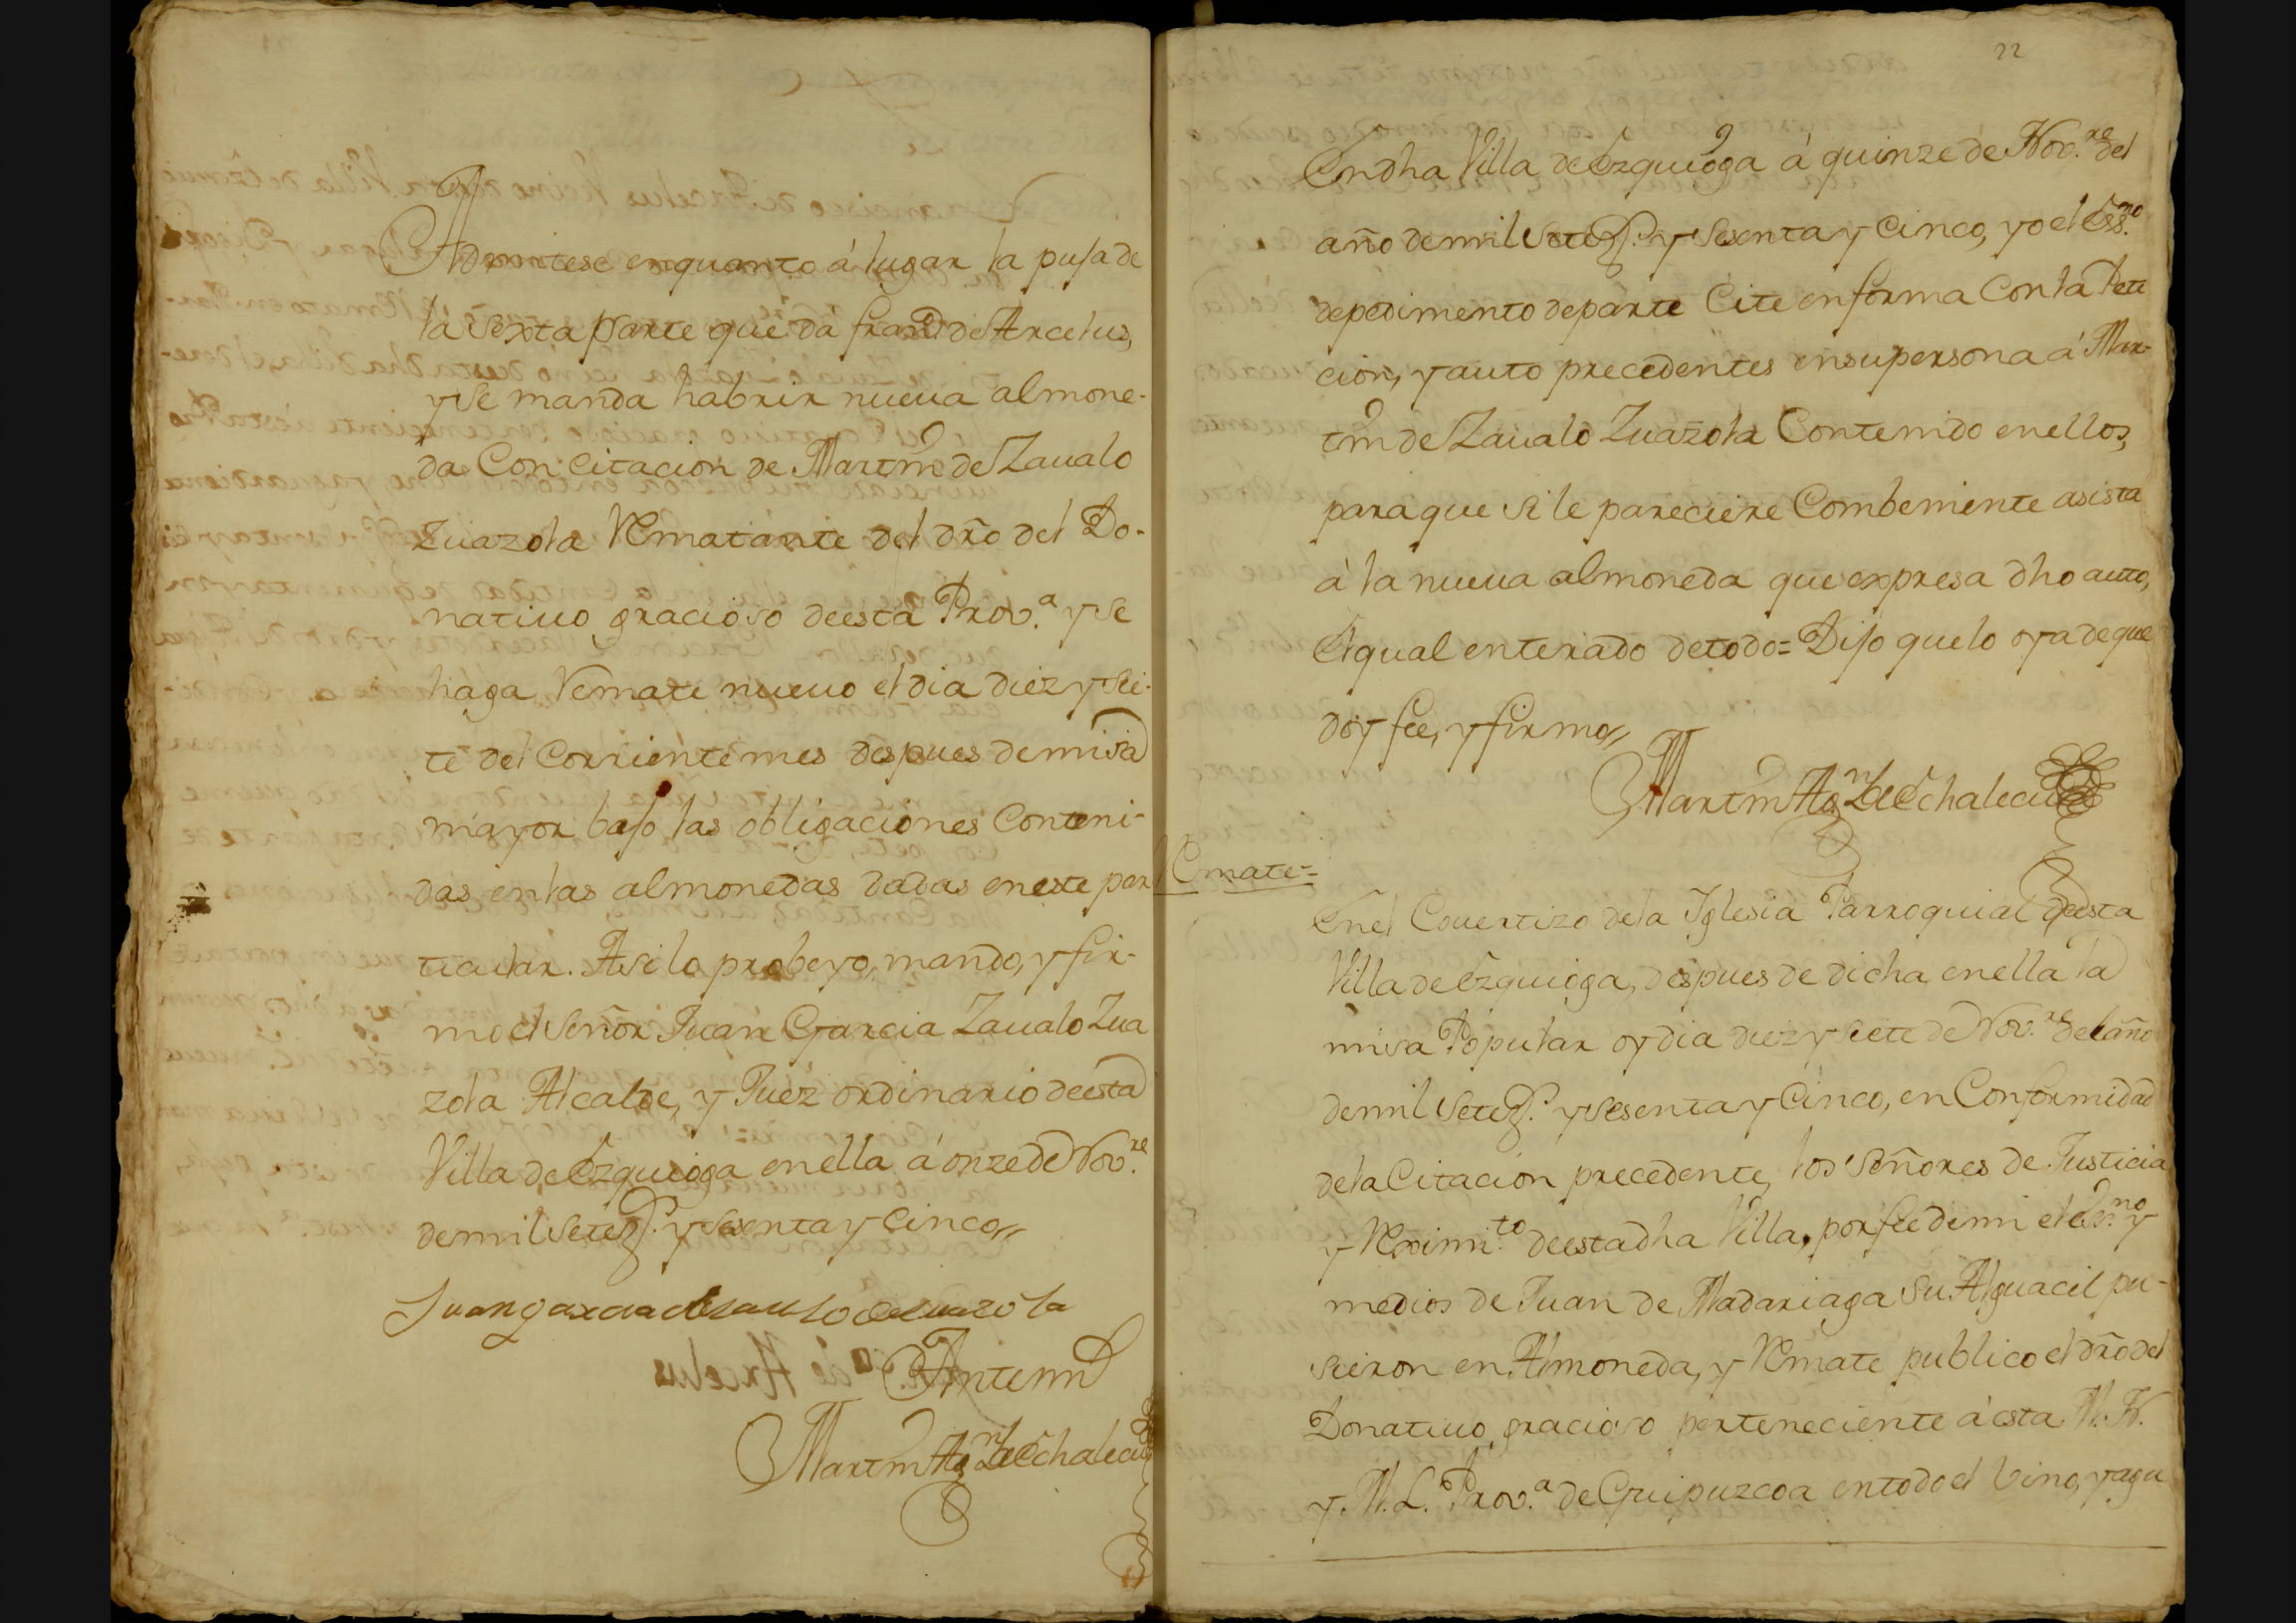 Admitese en quanto á lugar la puja de
la sexta parte que da fran.co de Arcelus,
y se manda habrir nueua almone-
da Con citacion de Martin de Zaualo
Zuazola Rematante del dro del Do-
natiuo gracioso de esta Prov.a y se
haga Remate nueuo el dia diez y sie-
te del Corriente mes despues de misa
mayor bajo las obligaciones Conteni-
das en las almonedas dadas en este par
ticular. Asi lo probeyo, mando, y fir-
mo el Señor Juan Garcia Zaualo Zua
zola Alcalde, y Juez ordinario de esta
Villa de Ezquioga en ella á onze de Nov.re
de mil setez.s y sesenta y Cinco,,
Juan garcia de Zaualo Zuazola
Antemi
Martin Ag.n de Echalecu
22
En dha Villa de Ezquioga á quinze de Nov.re del
año de mil setez.s y sesenta y Cinco, yo el Ess.no
de pedimento de parte Cite en forma Con la Peti
cion, y auto precedentes en su persona á Mar-
tin de Zaualo Zuazola Contenido en ellos,
para que si le pareciere Combeniente asista
á la nueua almoneda que expresa dho auto,
El qual enterado de todo = Dijo que lo oya de que
doy fee, y firmo,,
Martin Ag.n de Echalecu
Remate =
En el Couertizo de la Iglesia Parroquial de esta
Villa de Ezquioga, despues de dicha en ella la
misa Popular oy dia diez y siete de Nov.re del año
de mil setez.s y sesenta y Cinco, en Conformidad
de la Citacion precedente, los Señores de Justicia
y Reximi.to de esta dha Villa, por fee de mi el Ess.no y
medios de Juan de Madariaga su Alguacil pu-
sieron en Almoneda, y Remate publico el dro del
Donatiuo gracioso perteneciente á esta M. N.
y M. L. Prov.a de Guipuzcoa en todo el Vino, y agu